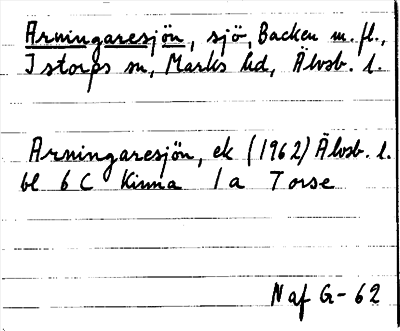 Arningaresjön, sjö, Backen m. fl.,
Istorps sn, Marks hd, Älvsb. l.
Arningaresjön, ek (1962) Älvsb. l.
bl 6 C Kinna 1 a Torse
N af G-62